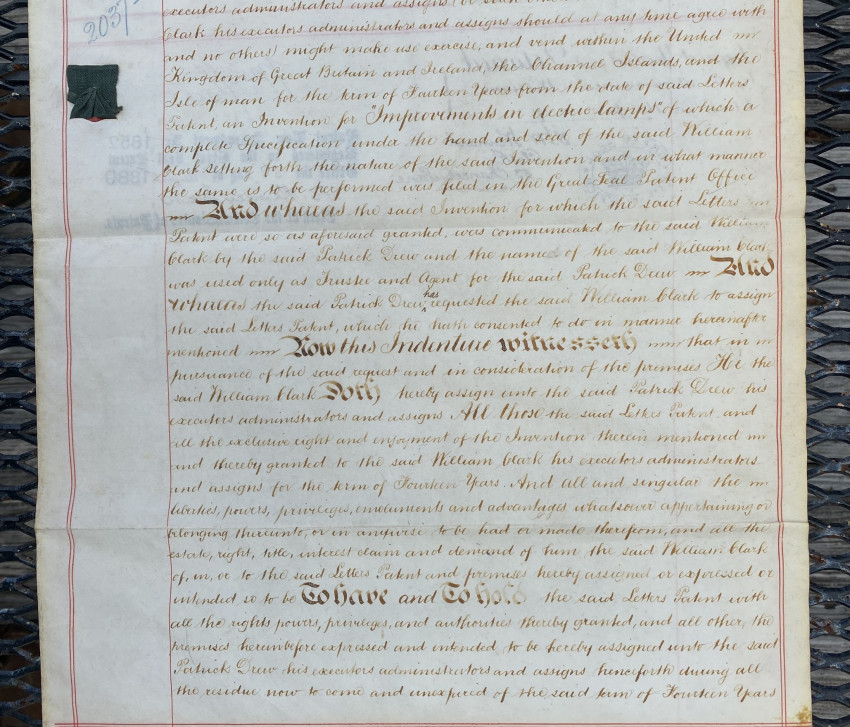 203/
executors administrators and assigns
Clark his executors administrators and assigns should at any time agree with
and no others) might make use exercise, and vend within the United
Kingdom of Great Britain and Ireland, the Channel Islands, and the
Isle of man for the term of Fourteen Years from the date of said Letters
Patent, an Invention for "Improvements in electric lamps" of which a
complete Specification under the hand and seal of the said William
Clark setting forth the nature of the said Invention and in what manner
the same is to be performed was filed in the Great Seal Patent Office
And whereas the said Invention for which the said Letters
Patent were so as aforesaid granted, was communicated to the said William
Clark by the said Patrick Drew and the name of the said William Clark
was used only as Trustee and Agent for the said Patrick Drew And
whereas the said Patrick Drew has requested the said William Clark to assign
the said Letters Patent, which he hath consented to do in manner hereinafter
mentioned Now this Indenture witnesseth that in
pursuance of the said request and in consideration of the premises He the
said William Clark Doth hereby assign unto the said Patrick Drew his
executors administrators and assigns All those the said Letters Patent, and
all the exclusive right and enjoyment of the Invention therein mentioned
and thereby granted to the said William Clark his executors administrators
and assigns for the term of Fourteen Years. And all and singular the
liberties, powers, privileges, emoluments and advantages whatsoever appertaining or
belonging thereunto, or in anywise to be had or made therefrom, and all the
estate, right, title, interest claim and demand of him, the said William Clark
of, in, or to the said Letters Patent and premises hereby assigned or expressed or
intended so to be To have and To hold the said Letters Patent with
all the rights powers, privileges, and authorities thereby granted, and all other, the
premises hereinbefore expressed and intended, to be hereby assigned unto the said
Patrick Drew his executors administrators and assigns henceforth during all
the residue now to come and unexpired of the said term of Fourteen Years